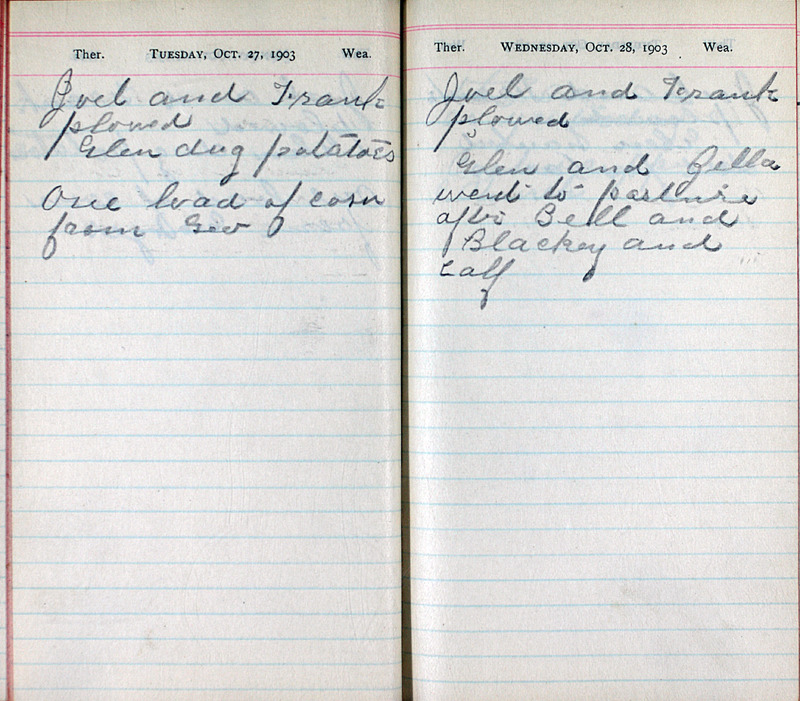 Ther. Tuesday, Oct. 27, 1903 Wea.
Joel and Frank
plowed
Glen dug potatoes
One load of corn
from Geo
Ther. Wednesday, Oct. 28, 1903 Wea.
Joel and Frank
plowed
Glen and Zella
went to pasture
after Bell and
Blackey and
calf